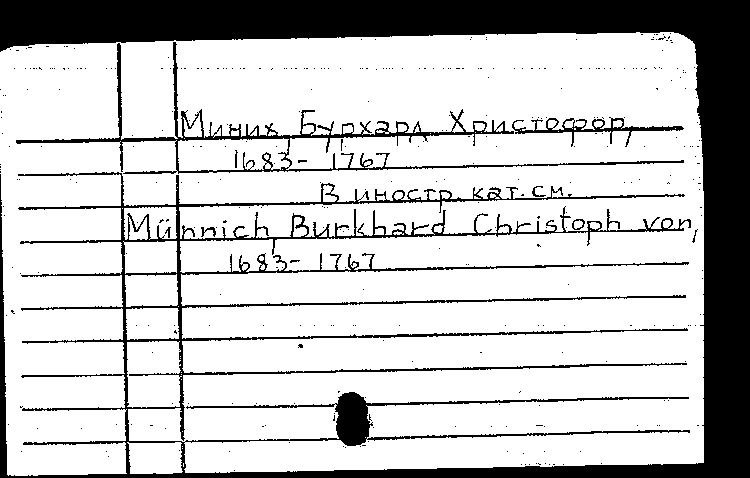 Миних, Бурхард Христофор,
1683-1767
В иностр. кат. см.
Münnich, Burkhard Christoph von,
1683-1767